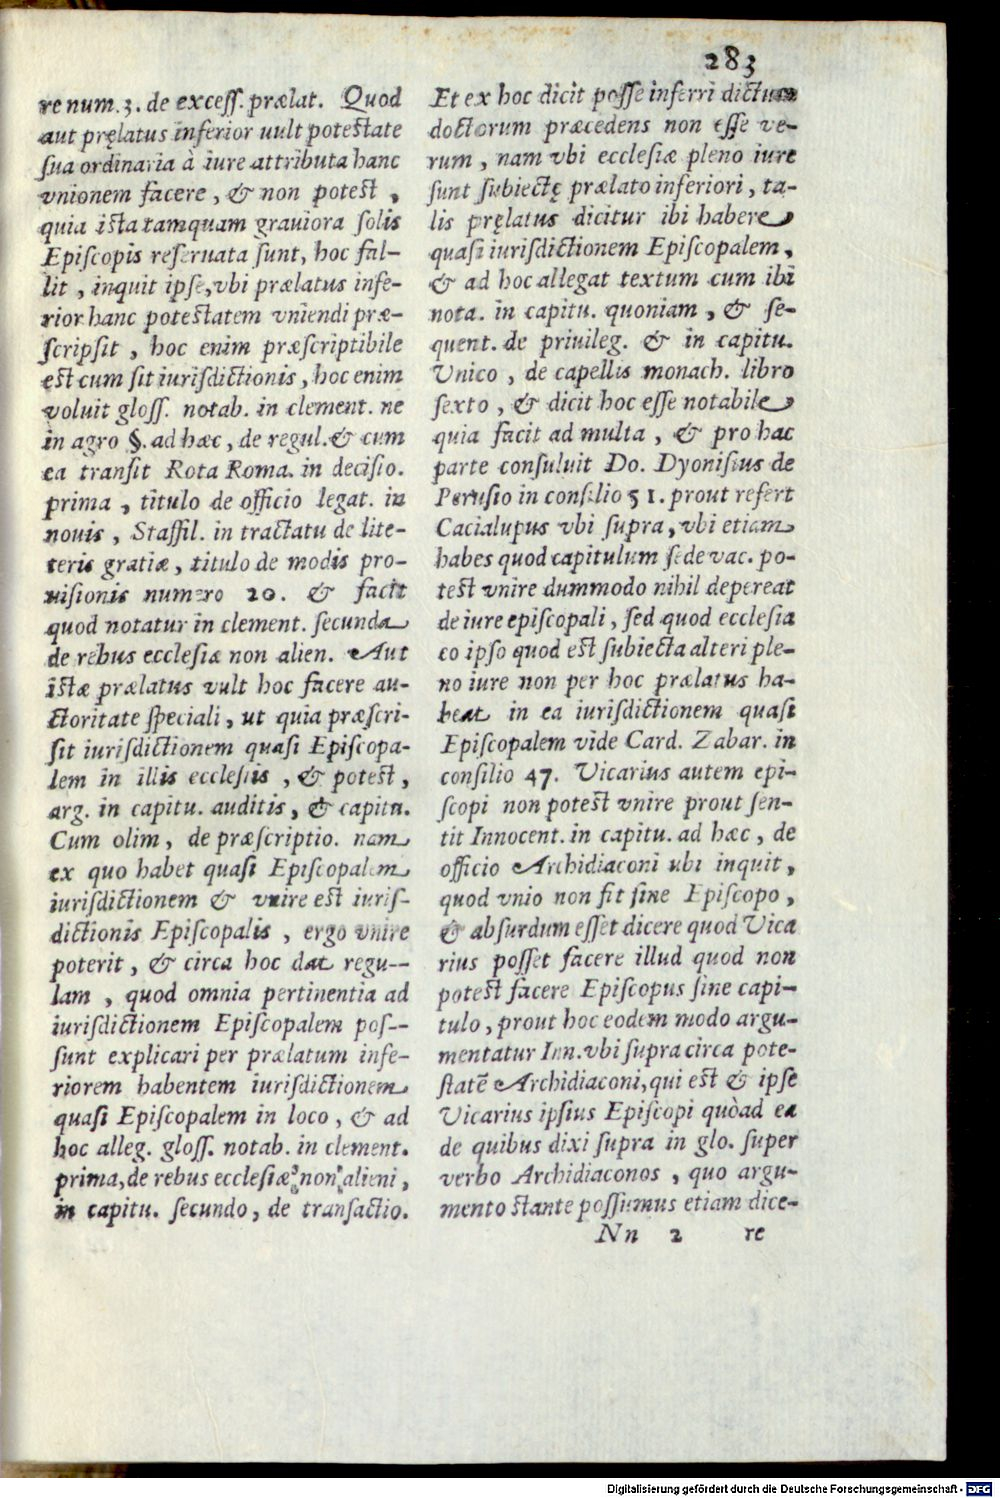 283
re num. 3. de excess. prælat. Quod
aut pręlatus inferior uult potestate
sua ordinaria à iure attributa hanc
vnionem facere, & non potest,
quia ista tamquam graviora solis
Episcopis reseruata sunt, hoc fal-
lit, inquit ipse, vbi prælatus infe-
rior hanc potestatem vniendi præ-
scripsit, hoc enim præscriptibile
est cum sit iurisdictionis, hoc enim
voluit gloss. notab. in clement. ne
in agro §. ad hæc, de regul. & cum
ea transit Rota Roma. in decisio.
prima, titulo de officio legat. in
nouis, Staffil. in tractatu de lite-
teris gratiæ, titulo de modis pro-
uisionis numero 20. & facit
quod notatur in clement. secunda
de rebus ecclesiæ non alien. Aut
istæ prælatus vult hoc facere au-
ctoritate speciali, ut quia præscri-
sit iurisdictionem quasi Episcopa-
lem in illis ecclesiis, & potest,
arg. in capitu. auditis, & capitu.
Cum olim, de præscriptio. nam
ex quo habet quasi Episcopalem
iurisdictionem & vnire est iuris-
dictionis Episcopalis, ergo vnire
poterit, & circa hoc dat regu--
lam, quod omnia pertinentia ad
iurisdictionem Episcopalem pos--
sunt explicari per prælatum infe-
riorem habentem iurisdictionem
quasi Episcopalem in loco, & ad
hoc alleg. gloss. notab. in clement.
prima, de rebus ecclesiæ non alieni,
in capitu. secundo, de transactio.
Et ex hoc dicit posse inferri dictum
doctorum præcedens non esse ve-
rum, nam vbi ecclesiæ pleno iure
sunt subiectę prælato inferiori, ta-
lis pręlatus dicitur ibi habere
quasi iurisdictionem Episcopalem,
& ad hoc allegat textum cum ibi
nota. in capitu. quoniam, & se-
quent. de privileg. & in capitu.
Vnico, de capellis monach. libro
sexto, & dicit hoc esse notabile
quia facit ad multa, & pro hac
parte consuluit Do. Dyonisius de
Perusio in consilio 51. prout refert
Cacialupus vbi supra, vbi etiam
habes quod capitulum sede vac. po-
test vnire dummodo nihil depereat
de iure episcopali, sed quod ecclesia
eo ipso quod est subiecta alteri ple-
no iure non per hoc prælatus ha-
beat in ea iurisdictionem quasi
Episcopalem vide Card. Zabar. in
consilio 47. Vicarius autem epi-
scopi non potest vnire prout sen-
tit Innocent. in capitu. ad hæc, de
officio Archidiaconi ubi inquit,
quod vnio non fit sine Episcopo,
& absurdum esset dicere quod Vica
rius posset facere illud quod non
potest facere Episcopus sine capi-
tulo, prout hoc eodem modo argu-
mentatur Inn. vbi supra circa pote-
statē Archidiaconi, qui est & ipse
Vicarius ipsius Episcopi quòad ea
de quibus dixi supra in glo. super
verbo Archidiaconos, quo argu-
mento stante possumus etiam dice-
Nn 2 re
Digitalisierung gefördert durch die Deutsche Forschungsgemeinschaft - DFG